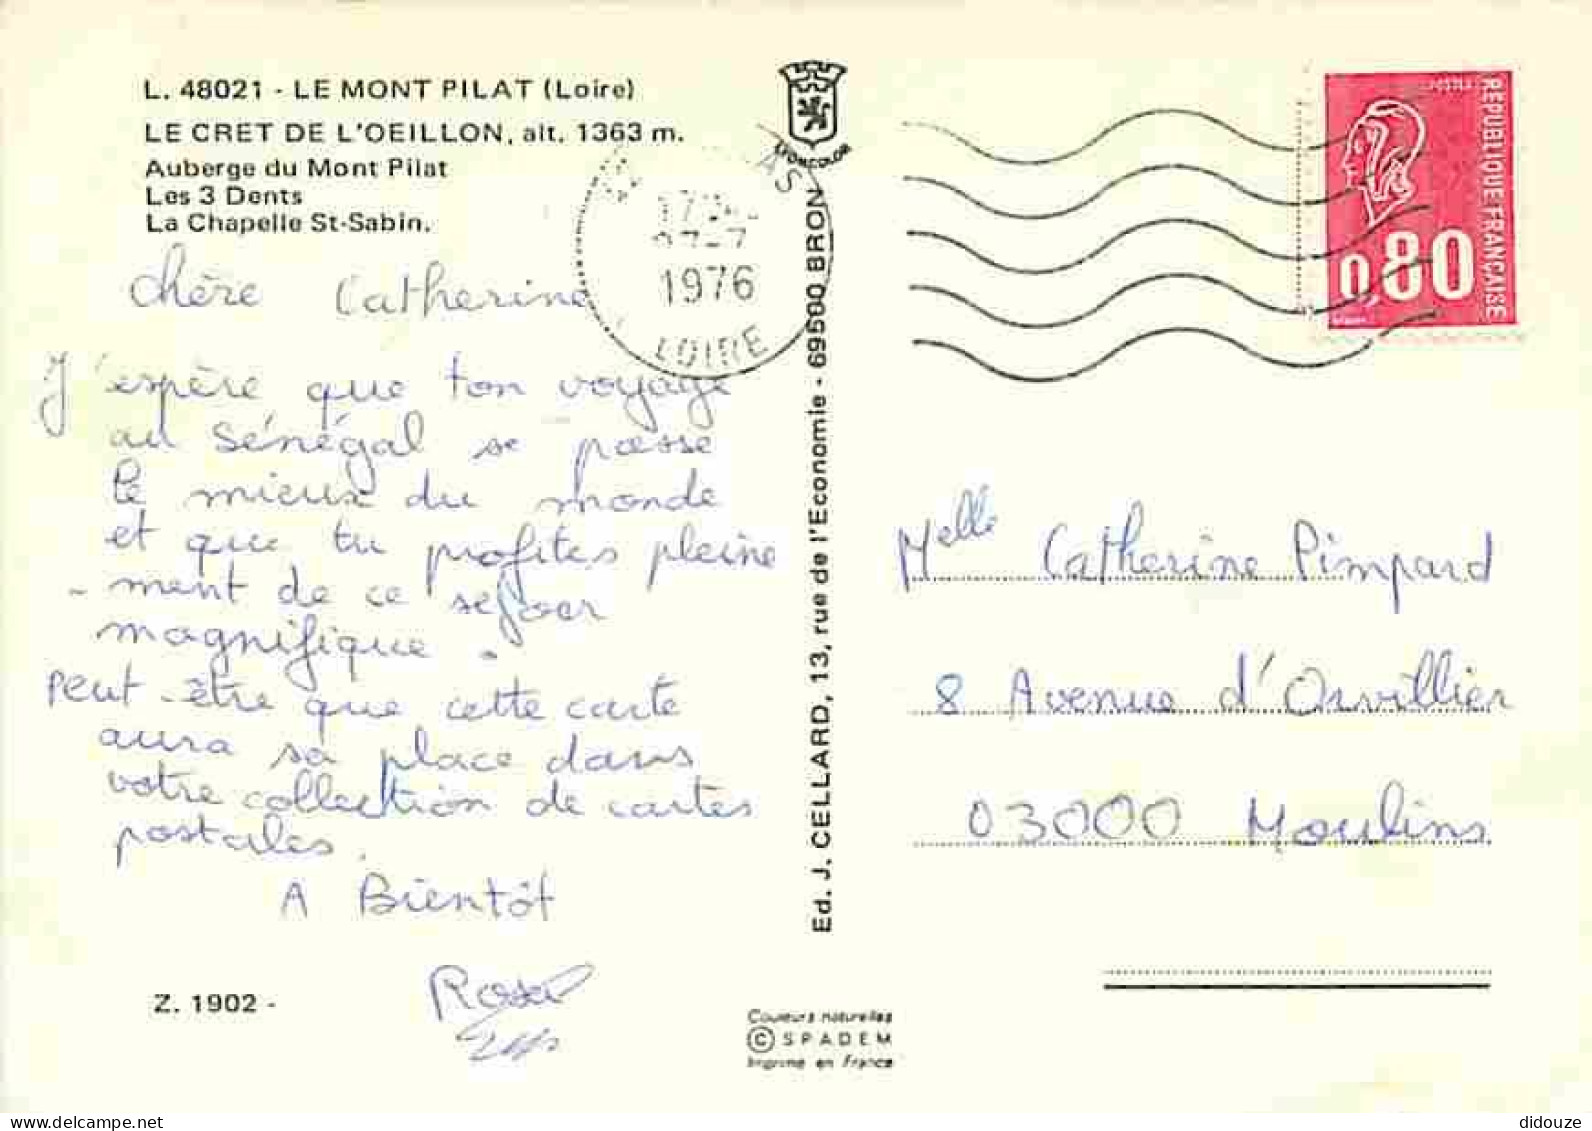 L. 48021 - LE MONT PILAT (Loire)
LE CRET DE L'OEILLON, alt. 1363 m.
Auberge du Mont Pilat
Les 3 Dents
La Chapelle St-Sabin.
chère Catherine
J'espère que ton voyage
au Sénégal se passe
le mieux du monde
et que tu profites pleine
- ment de ce sejour
magnifique.
Peut-être que cette carte
aura sa place dans
votre collection de cartes
postales.
A Bientôt
Z. 1902 -
LYONCOLOR
AS
1976
LOIRE
Ed. J. CELLARD, 13, rue de l'Economie - 69500 BRON
Couleurs naturelles
© SPADEM
Imprimé en France
POSTES
REPUBLIQUE FRANÇAISE
0,80
Melle Catherine Pimpard
8 Avenue d'Orvillier
03000 Moulins
delcampe.net
didouze